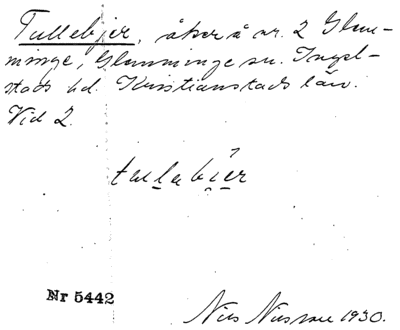 Tullebjer, åker å nr. 2 Glim-
minge, Glimminge sn. Ingel-
stads hd. Kristianstads län.
Vid 2.
tulabi̯er
Nr 5442
Nils Nilsson 1930.